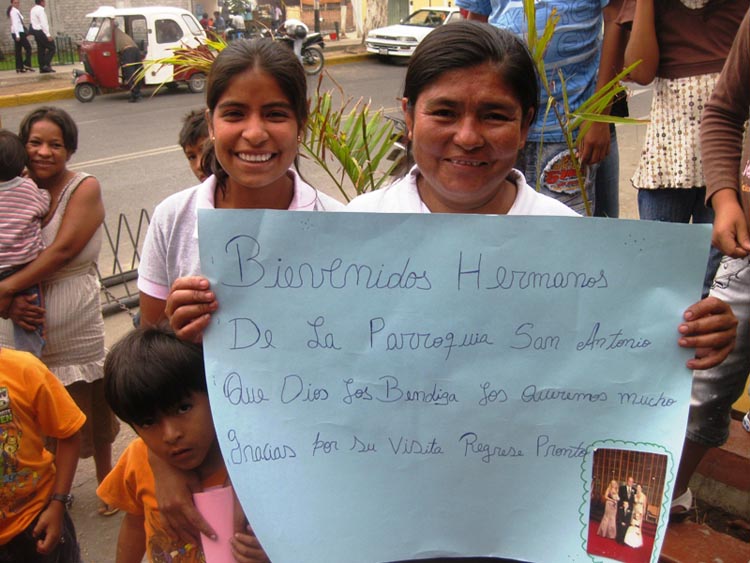 Bienvenidos Hermanos
De La Parroquia San Antonio
Que Dios Los Bendiga Los Queremos mucho
Gracias por su Visita Regrese Pronto